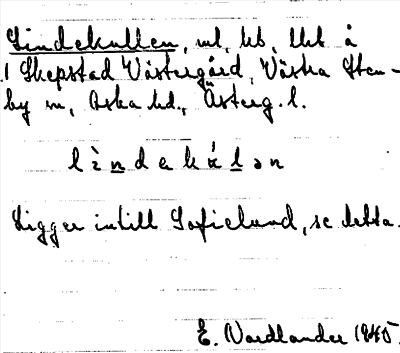 Lindekullen, ml, hb, lht å
1 Skepstad Västergård, Västra Sten-
by sn, Aska hd., Österg. l.
l ì n d e k ú l ə n
Ligger intill Sofielund, se detta.
E. Nordlander 1940.